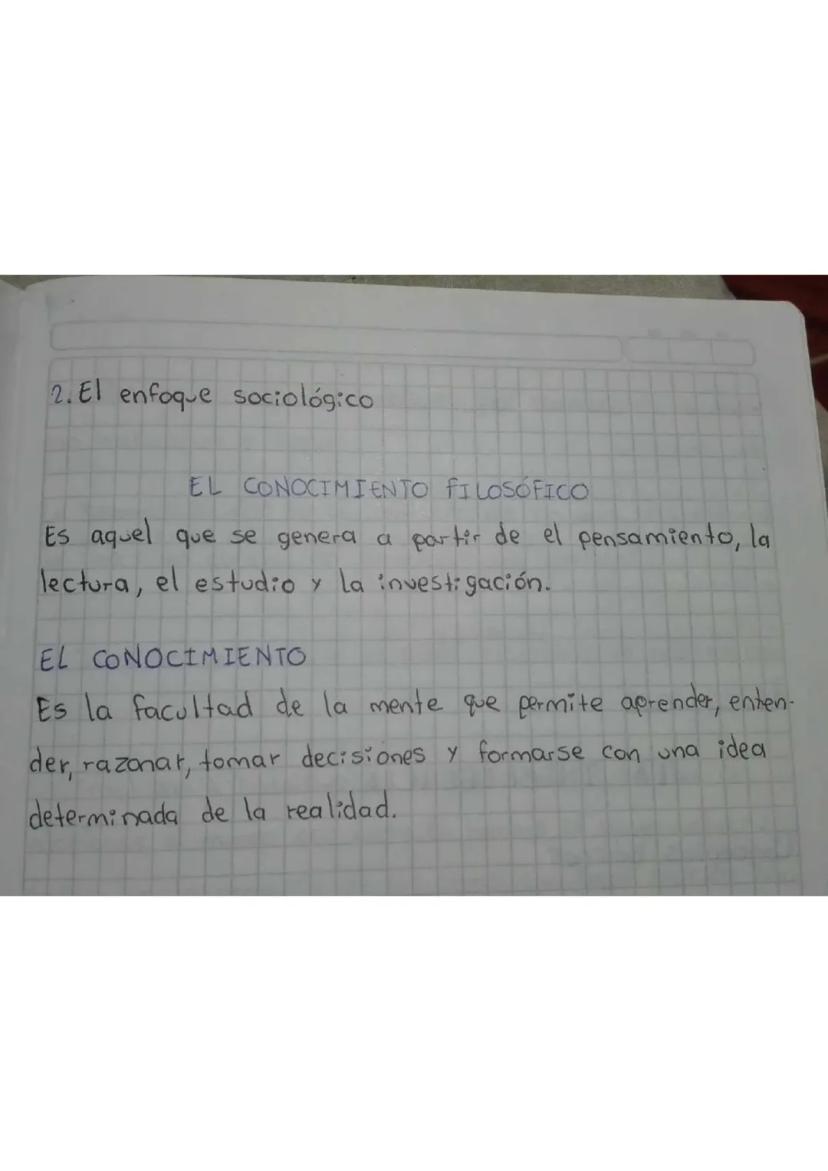 2. El enfoque sociológico
EL CONOCIMIENTO FILOSÓFICO
Es aquel que se genera a partir de el pensamiento, la
lectura, el estudio y la investigación.
EL CONOCIMIENTO
Es la facultad de la mente que permite aprender, enten-
der, razonar, tomar decisiones y formarse con una idea
determinada de la realidad.